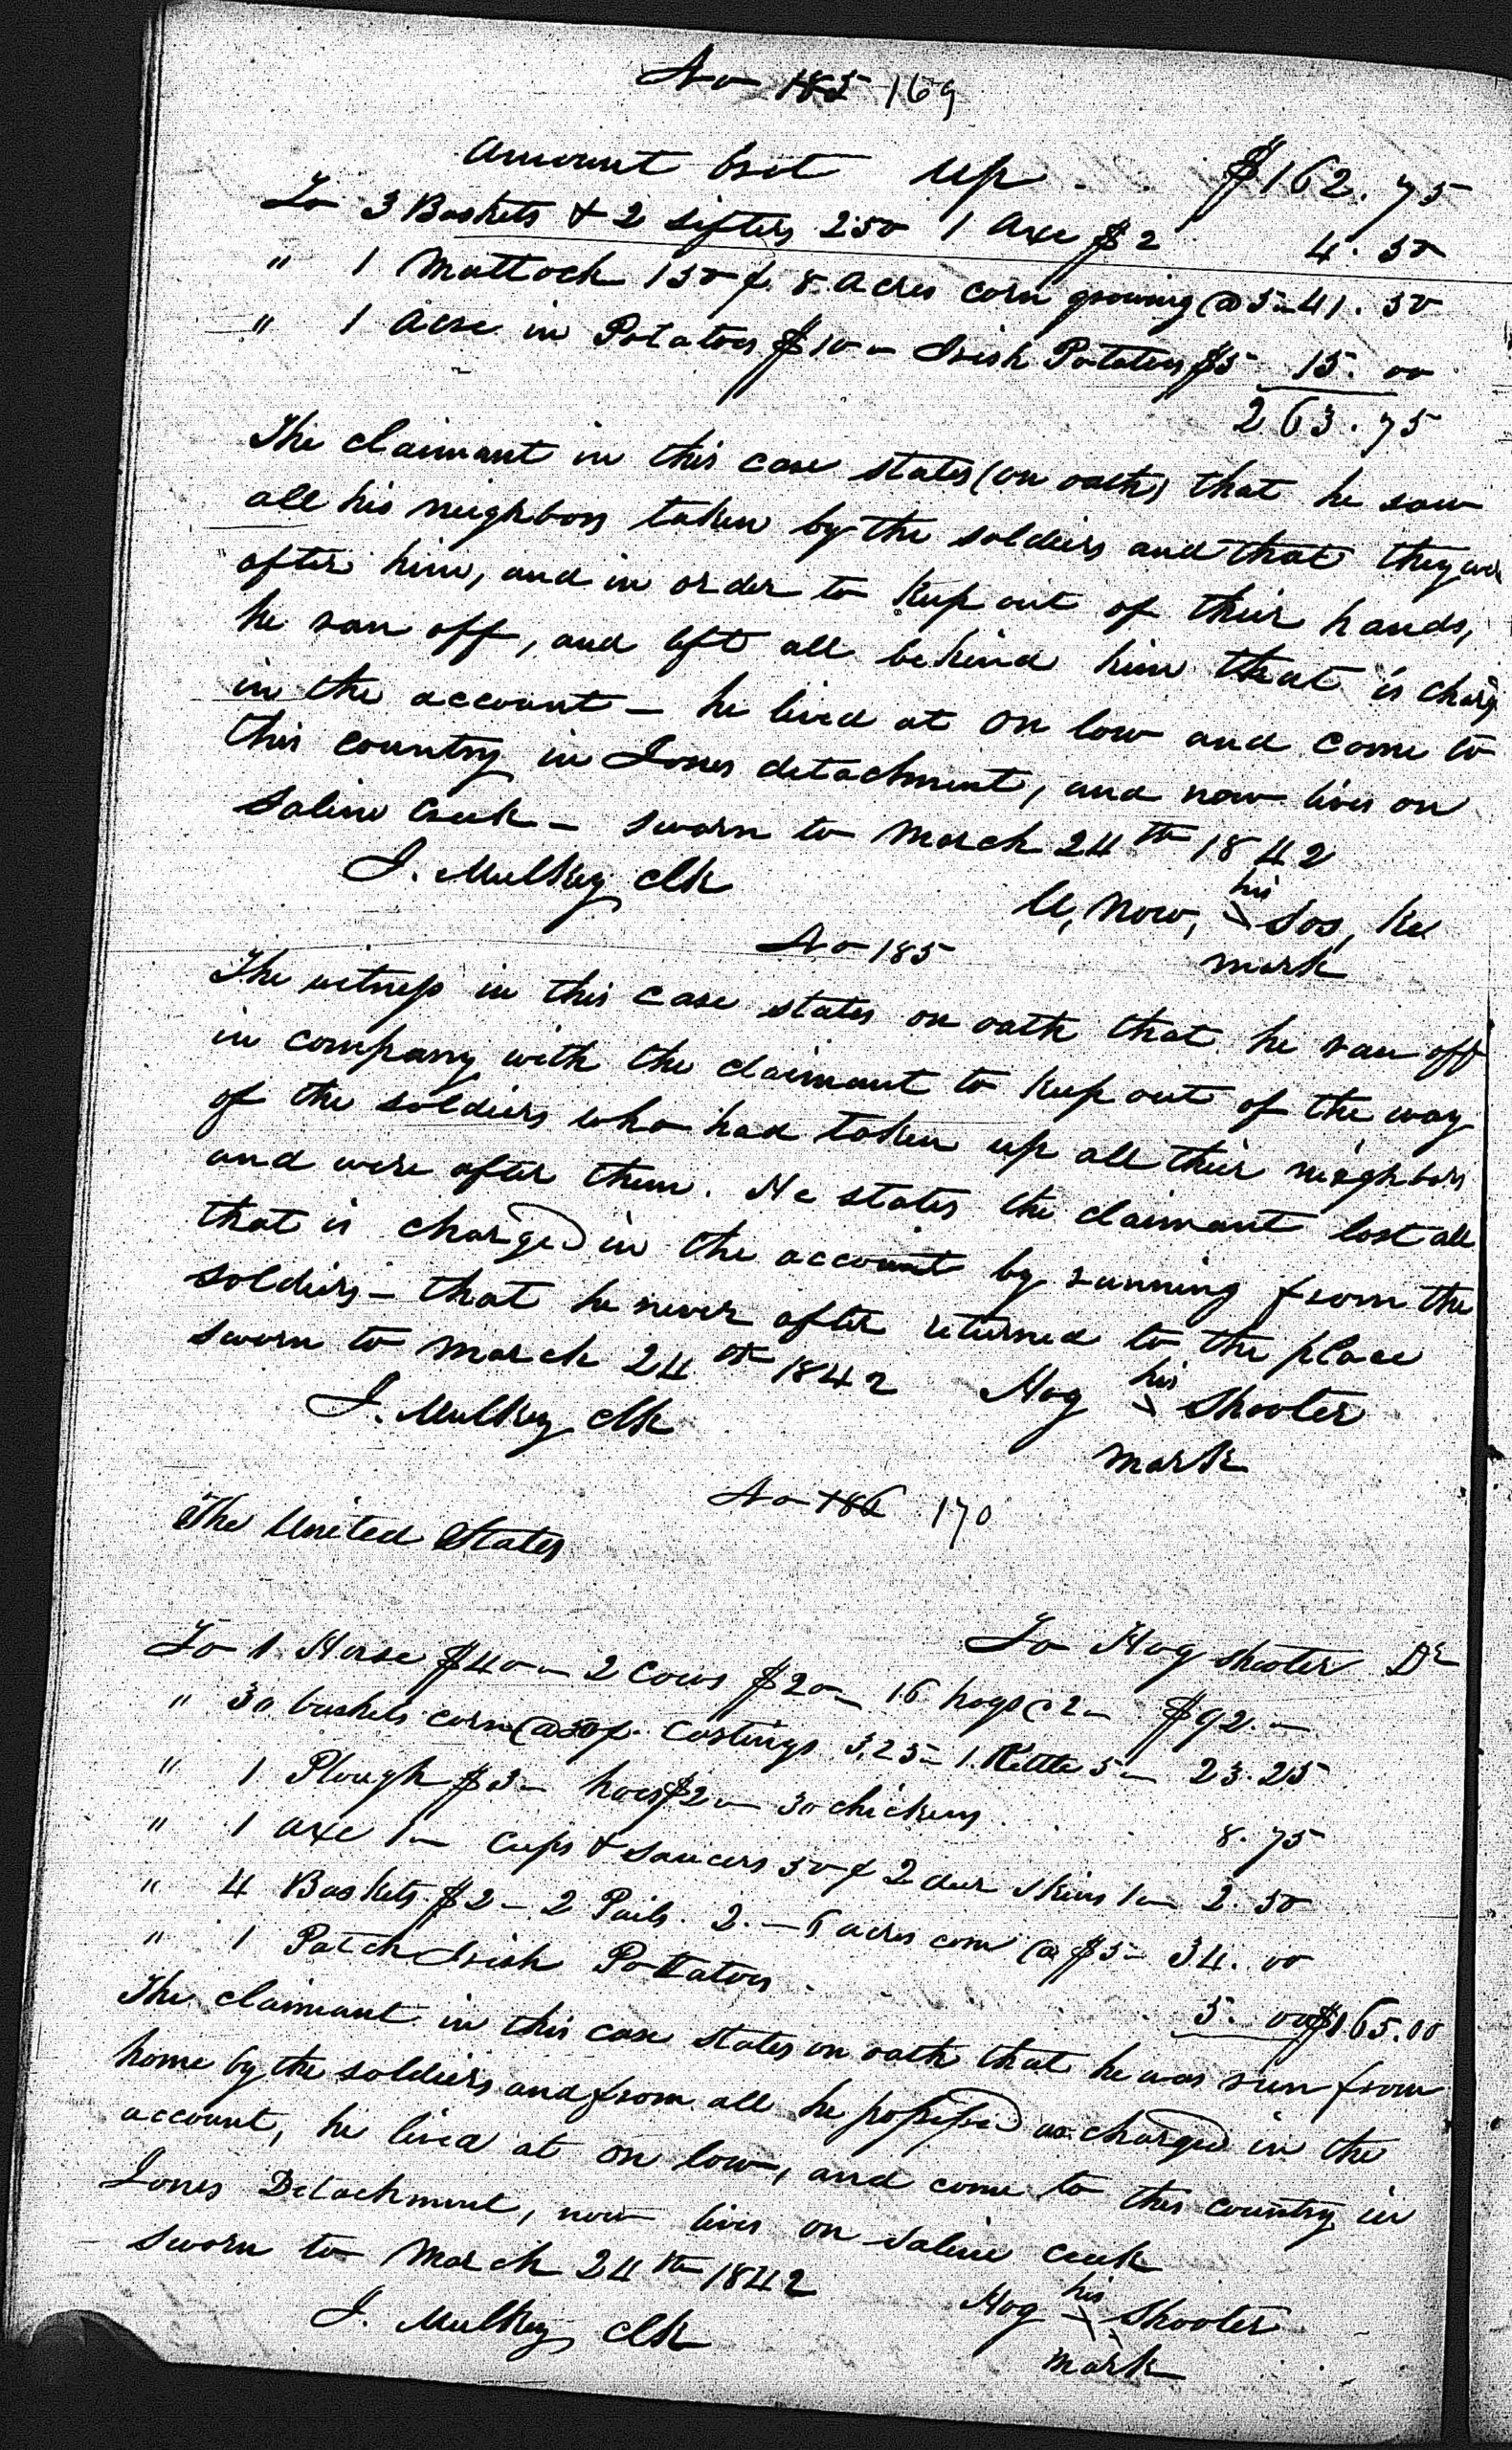 No 185 169
Amount brot up . . $162.75
To 3 Baskets & 2 sifters 2.50 1 Axe $2 4.50
" 1 Mattock 150 ¢ 8 Acres corn growing @ 5 - 41.50
" 1 Acre in Potatoes $10 - Irish Potatoes $5 15.00
263.75
The claimant in this case states (on oath) that he saw
all his neighbors taken by the soldiers and that they were
after him, and in order to keep out of their hands,
he ran off, and left all behind him that is charg
in the account - he lived at On low and come to
this country in Jones detachment, and now lives on
Saline Creek - sworn to March 24th 1842
J. Mulkey clk
U, Now, his x Sos, Ke
mark
No 185
The witness in this case states on oath that he ran off
in company with the claimant to keep out of the way
of the soldiers who had taken up all their neighbors
and were after them. He states the claimant lost all
that is charged in the account by running from the
soldiers - that he never after returned to the place
sworn to March 24th 1842 Hog his x Shooter
J. Mulkey clk
mark
No 186 170
The United States
To Hog shooter Dr
To 1 Horse $40 - 2 Cows $20 - 16 hogs @ 2 - $92. -
" 30 bushels corn @ 50 ¢. Castings 3.25 - 1 Kettle 5 - 23.25
" 1 Plough $3 - hoes $2 - 30 chickens . . 8.75
" 1 axe 1 - Cups & saucers 50 ¢ 2 deer skins 1 - 2.50
" 4 Baskets $2 - 2 Pails. 2. - 6 acres corn @ $5 - 34.00
" 1 Patch Irish Potatoes . . 5.00 $165.00
The claimant in this case states on oath that he was run from
home by the soldiers and from all he possessed as charged in the
account, he lived at On low, and come to this country in
Jones Detachment, now lives on Saline creek
Sworn to March 24th 1842
Hog his x Shooter
J. Mulkey clk
mark